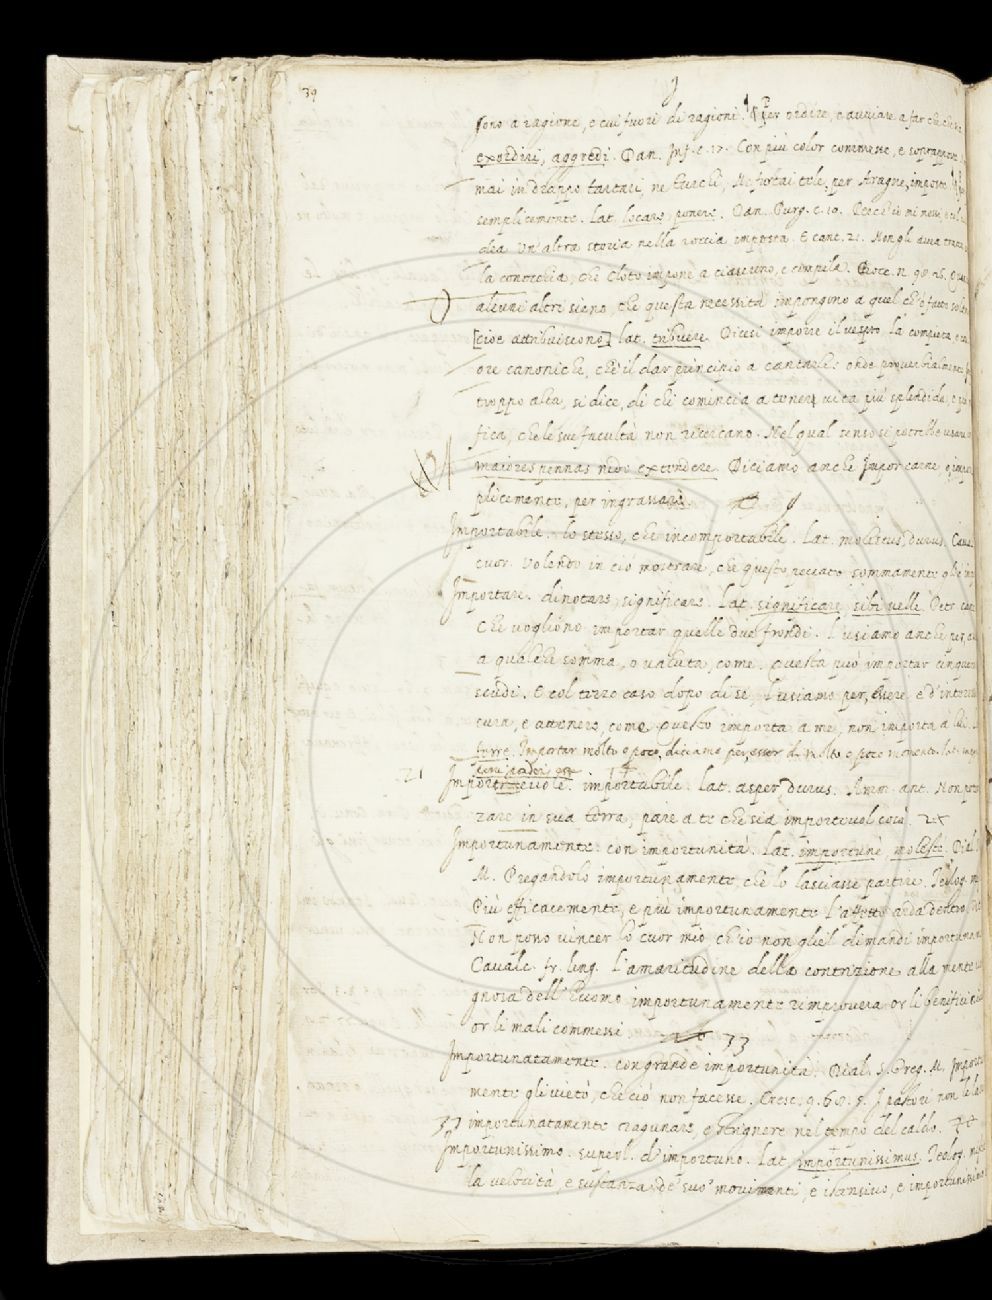 39
J
sono a ragione, e cui fuori di ragioni. ¶ Per ordire, e avviare a far che che
exordiri, aggredi. Dan. Inf. c. 17. Con più color commesse, e soprapposte
mai in drappo Tartari, ne Turchi, Ne fur tai tele per Aragne imposte. ¶ Per
semplicemente. Lat. locare, ponere. Dan. Purg. c. 10.
dea Un'altra storia nella roccia imposta. E cant. 21. Non gli avea tratta
la conocchia, che Cloto impone a ciascuno, e compila. Bocc. n. 98.
alcuni altri sieno, che questa necessità impongono a quel ch'è fatto
[cioè attribuiscono] lat. tribuere. Dicesi imporre il vespro, la compieta,
ore canoniche, ch'è il dar principio a cantarle: onde proverbialmente
troppo alta, si dice, di chi comincia a tener vita più splendida, e
fica, che le sue facultà non ricercano. Nel qual senso si potrebbe usare
maiores pennas nido extendere. Diciamo anche Impor carne,
plicemente, per ingrassare.
Importabile. lo stesso, che incomportabile. Lat. molestus, durus. Caval.
cuor. Volendo in ciò mostrare, che questo peccato sommamente
Importare. dinotare, significare. Lat. significare, sibi velle. Petr. can
Che vogliono importar quelle due frondi. L'usiamo anche per
a qualche somma, o valuta, come. questa può importar cinquanta
scudi. E col terzo caso dopo di se, l'usiamo per, essere, e d'interesse
cura, e attenere, come questo importa a me, non importa a lui.
Importar molto, o poco, diciamo per, esser di molto o poco momento. lat.
21 Importevole. importabile. Lat. asper, durus. Amm. ant. Non
zare in sua terra, pare a te che sia importevol cosa.
Importunamente. con importunità. Lat. importune, moleste. Dial.
M. Pregandolo importunamente, che lo lasciasse partire. Teolog. m
Più efficacemente, e più importunamente l'affetto arda dentro.
Non posso vincer lo cuor mio ch'io non gliel dimandi importunam
Cavalc. fr. ling. L'amaritudine della contrizione alla mente
gnoia dell'huomo importunamente rimprovera or li benifici
or li mali commessi. 33
Importunatamente. con grande importunità. Dial. S. Greg. M. Importu
mente gli vietò, che ciò non facesse. Cresc. 9. 68. 5. I pastori non le la
importunatamente ragunare, e strignere nel tempo del caldo.
Importunissimo. superl. d'importuno. Lat. importunissimus. Teolog.
la velocità, e sustanza de' suoi movimenti, e importunissimo